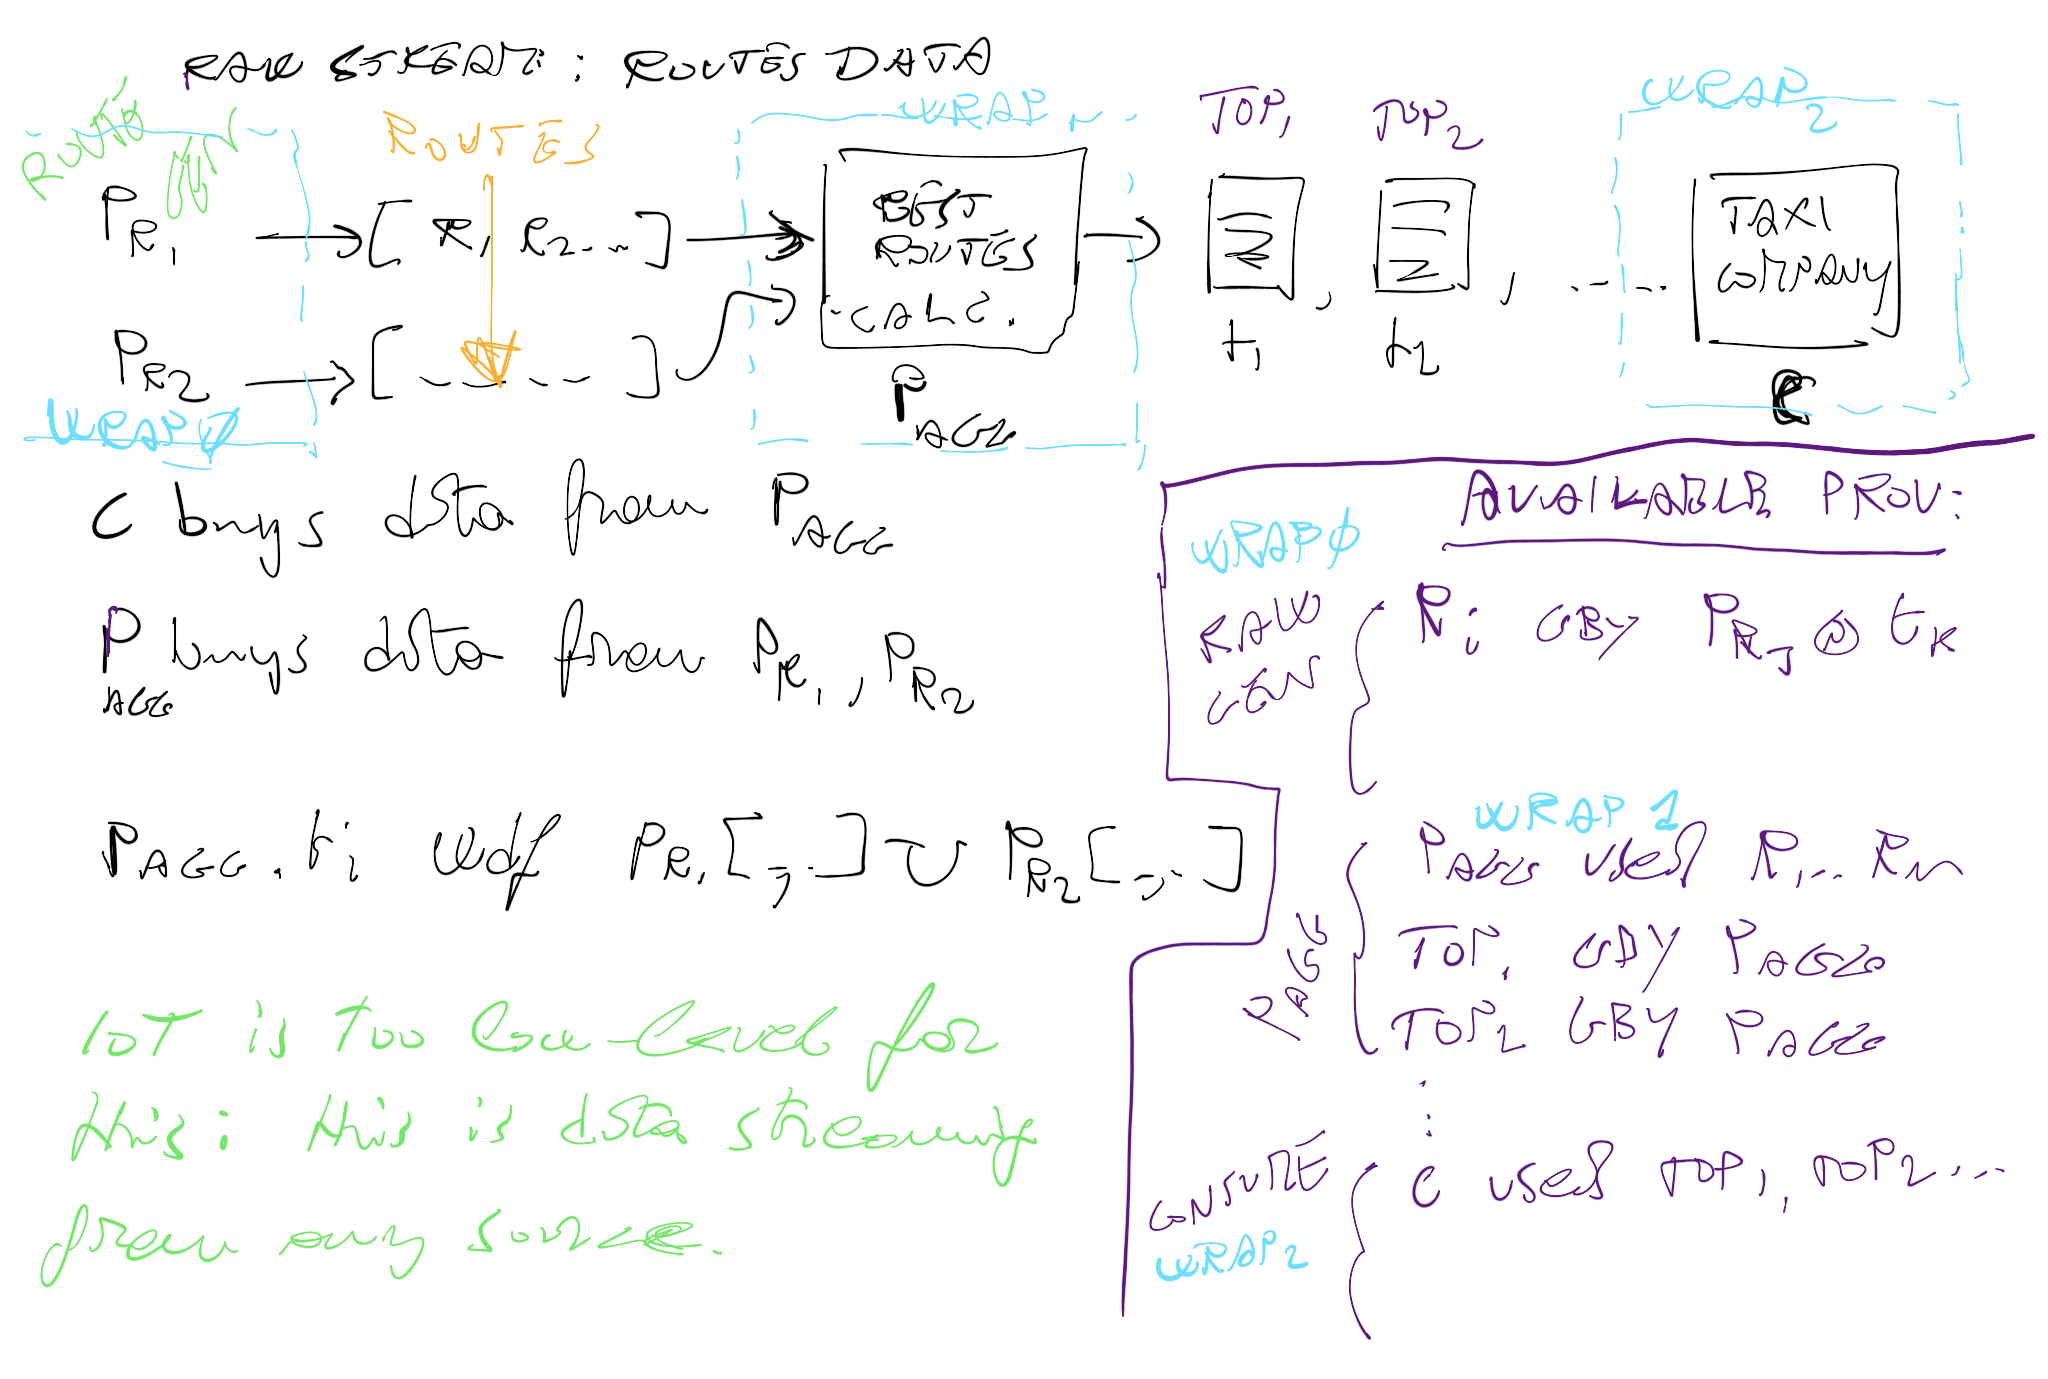 RAW STREAM: ROUTES DATA
ROUTE
GEN
ROUTES
WRAP
TOP1
TOP2
WRAP2
PR1
[ R1 R2 ... ]
BEST
ROUTES
CALC.
, , .....
TAXI
COMPANY
PR2
[ ----- ]
t1
t2
C
WRAP0
PAGG
C buys data from PAGG
PAGG buys data from PR1, PR2
PAGG . ti wdf PR1[,..] ∪ PR2[..,.]
IoT is too low-level for
this: this is data streaming
from any source.
AVAILABLE PROV:
WRAP0
RAW
GEN
Ri GBY PRJ @ tK
WRAP 1
PAGG
PAGG used R1... Rn
TOP1 GBY PAGG
TOP2 GBY PAGG
:
CONSUME
WRAP2
C used TOP1, TOP2...